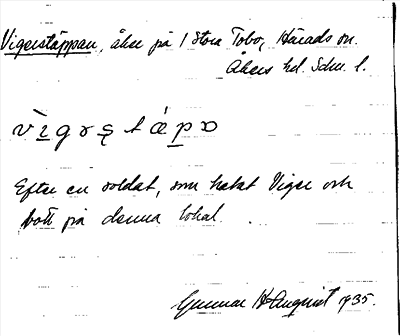 Vigerstäppan, åker på 1 Stora Tobo, Härads sn.
Åkers hd. Sdm. l.
Efter en soldat, som hetat Viger och
bott på denna lokal.
Gunnar H-Anqvist 1935.